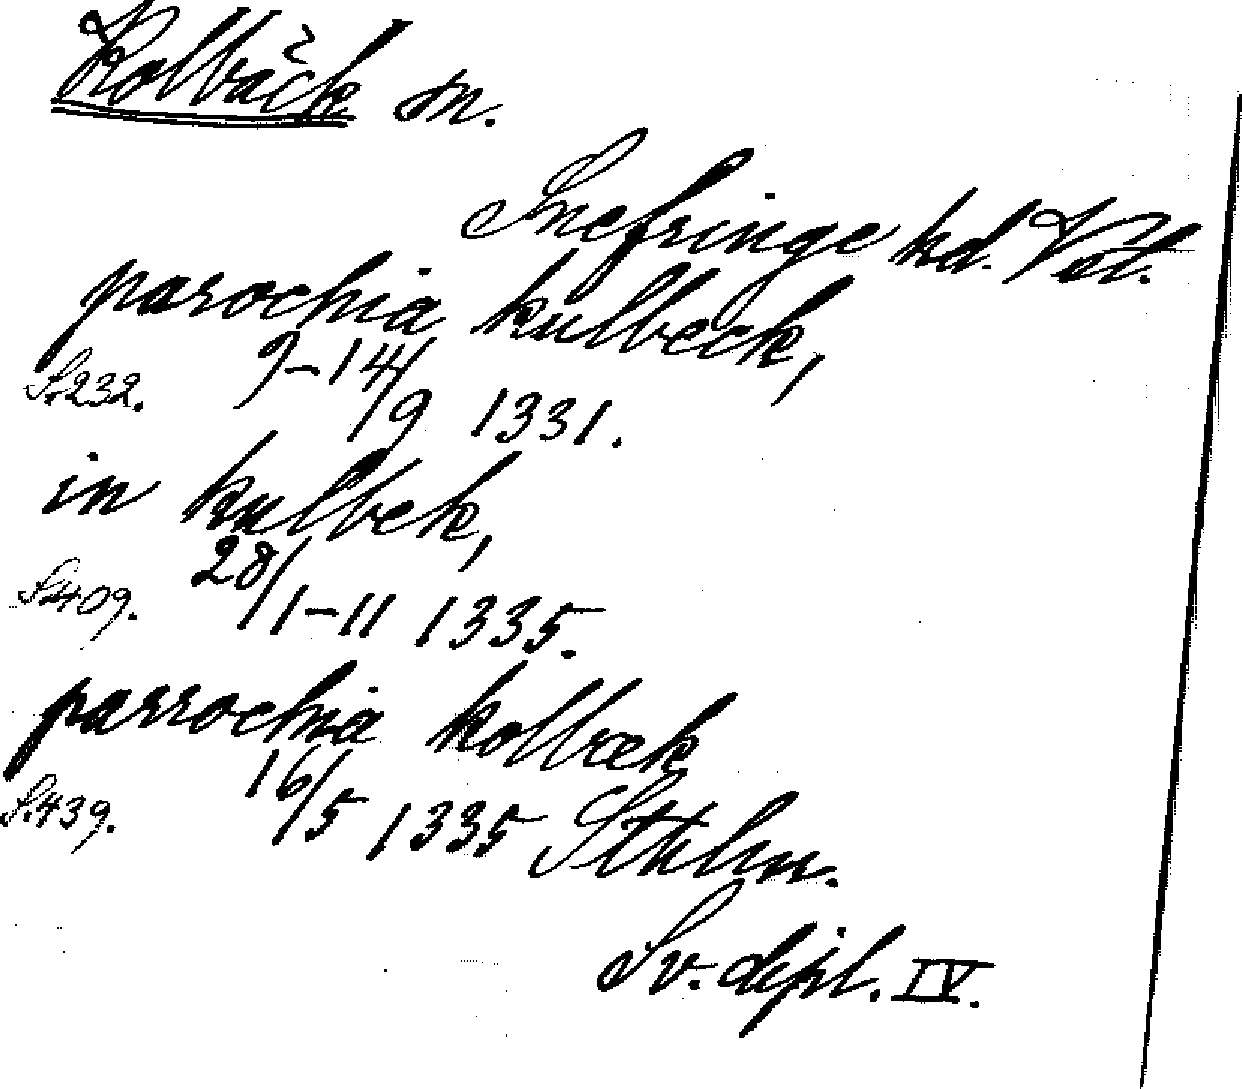 Kolbäck sn.
Snefringe hd. Vstl.
parochia kulbeck,
S. 232. 9-14/9 1331.
in kulbek,
S. 409. 28/1-11 1335.
parrochia kolbæk
S. 439. 16/5 1335 Sthlm.
Sv. dipl. IV.